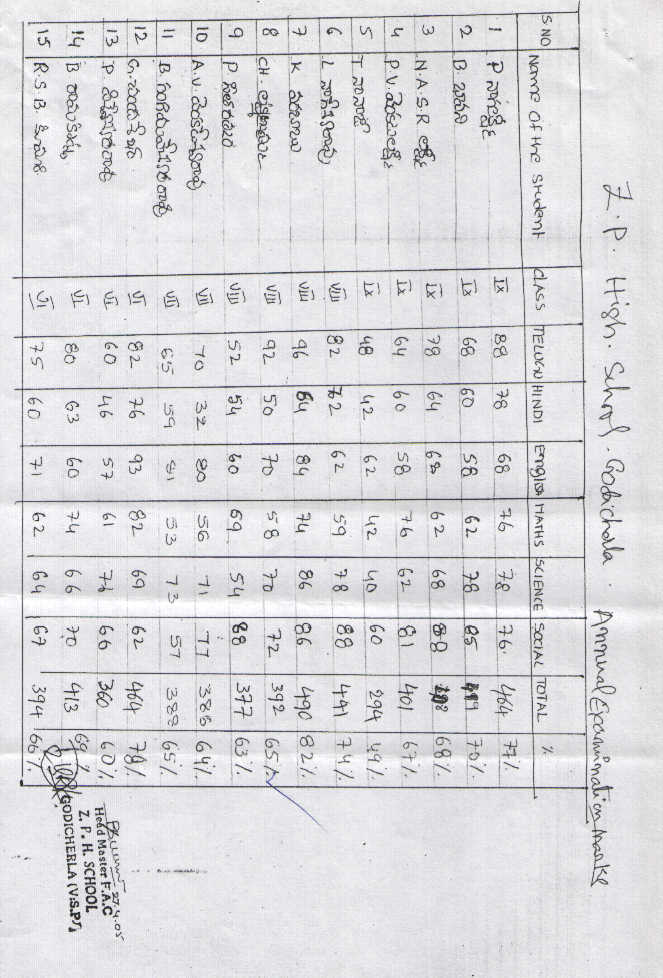 Z.P. High. School. Godicharla. Annual Examination Marks
S NO Name of the Student CLASS TELUGU HINDI English MATHS SCIENCE SOCIAL TOTAL %
1 P నాగలక్ష్మి IX 88 78 68 76 78 76 464 77%
2 B. IX 68 60 58 62 78 85 70%
3 N.A.S.R లక్ష్మి IX 78 64 68 62 68 68%
4 P.V. IX 64 60 58 76 62 81 401 67%
5 T నానాజీ IX 48 42 62 42 40 60 294 49%
6 L VIII 82 72 62 59 78 88 441 74%
7 K వరబాబు VIII 96 64 84 74 86 86 490 82%
8 CH. VIII 92 50 70 58 70 72 392 65%
9 P VIII 52 54 60 69 54 88 377 63%
10 A.V. VII 70 32 80 56 71 77 64%
11 B. VII 65 59 81 53 73 57 388 65%
12 G. VI 82 76 93 82 69 62 464 78%
13 P VI 60 46 57 61 66 360 60%
14 B VI 80 63 60 74 66 70 413
15 R.S.B. VI 75 60 71 62 64 67 394 66%
27.4.05
Head Master F.A.C
Z. P. H. SCHOOL
GODICHERLA (V.S.P)